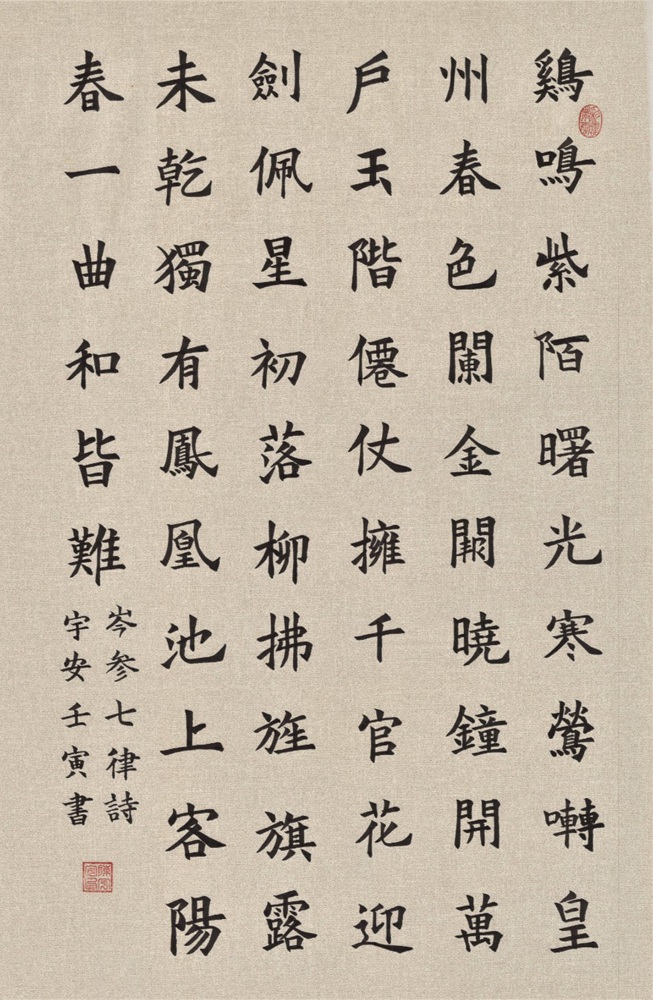 鷄鳴紫陌曙光寒鶯囀皇
州春色闌金闕曉鐘開萬
戶玉階僊仗擁千官花迎
劍佩星初落柳拂旌旗露
未乾獨有鳳凰池上客陽
春一曲和皆難
岑参七律詩
宇安壬寅書